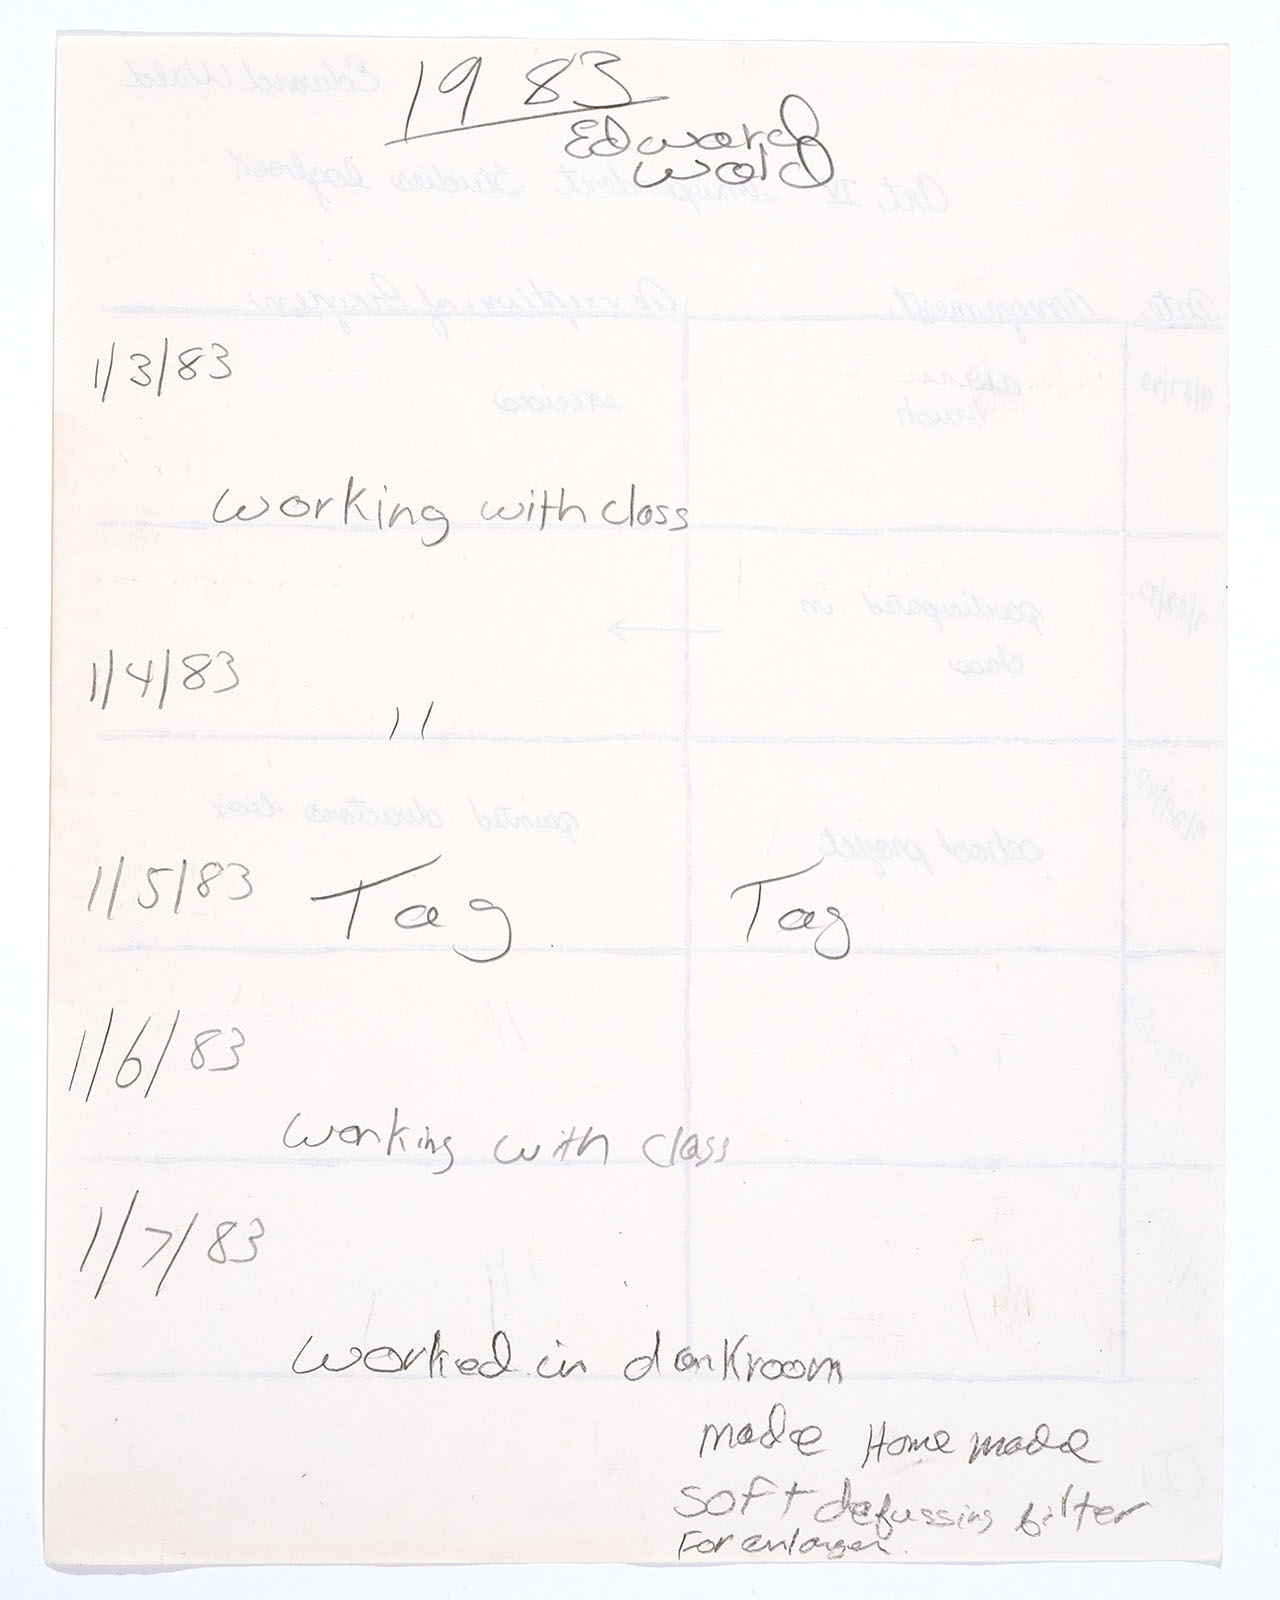 1983
Edward
Wald
1/3/83
working with class
1/4/83
"
1/5/83 Tag Tag
1/6/83
working with class
1/7/83
worked in darkroom
made Home made
soft defussing filter
For enlarger.